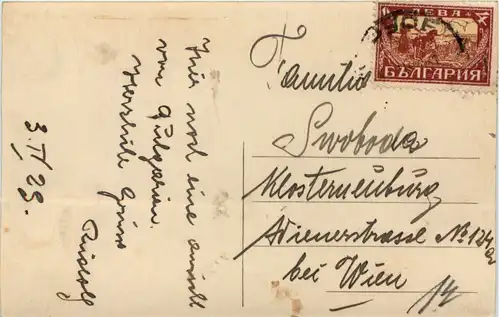 Hier noch eine Ansicht
von Bulgarien.
Herzliche Grüsse
Rudolf
3. IV 29.
ЛЕВА
БЪЛГАРИЯ
Familie
Swoboda
Klosterneuburg
Wienerstrasse No 124
bei Wien